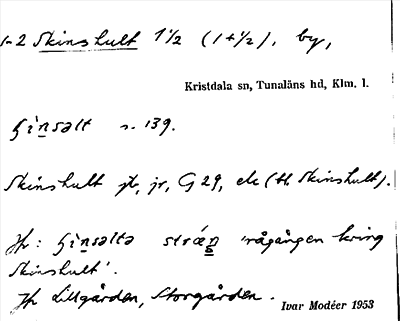 1-2 Skinshult 1 1/2 (1+1/2), by,
Kristdala sn, Tunaläns hd, Klm. l.
s. 139.
Skinshult jr, G 29, ek (bl. Skinshult).
Jfr: 'rågången kring
Skinshult'.
Jfr Lillgården, Storgården.
Ivar Modéer 1953